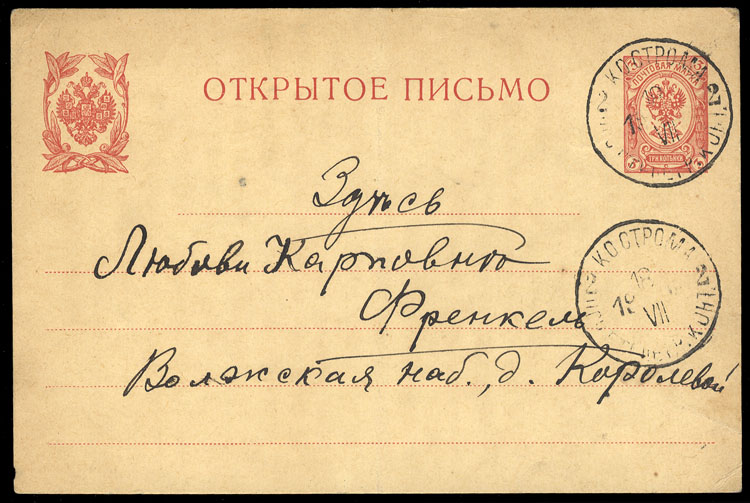 ОТКРЫТОЕ ПИСЬМО
ПОЧТОВАЯ МАРКА
ТРИ КОПѢЙКИ
КОСТРОМА
18
VII
Здѣсь
Любови Карповнѣ
Френкель
Волжская наб., д. Королевой
КОСТРОМА
18
19
VII